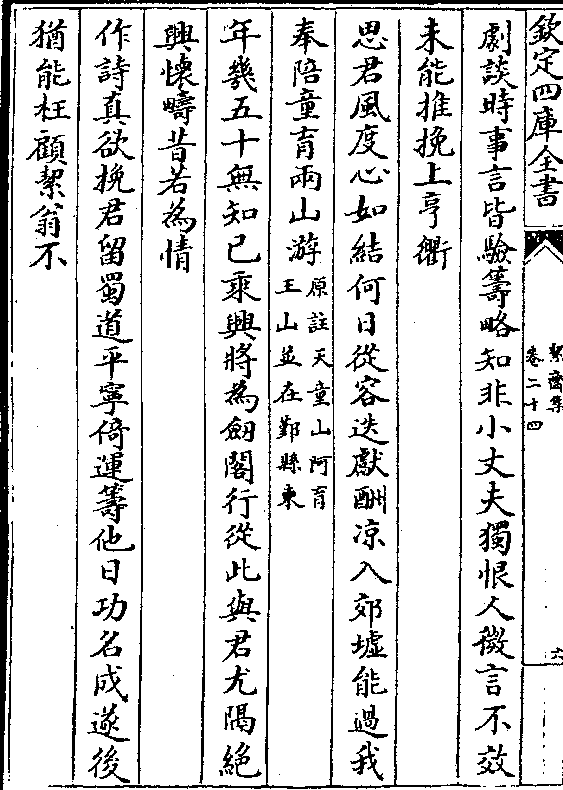 欽定四庫全書
絜齋集
卷二十四
六
劇談時事言皆驗籌略知非小丈夫獨恨人微言不效
未能推挽上亨衢
思君風度心如結何日從容迭獻酬凉入郊墟能過我
奉陪童育兩山游原註天童山阿育
王山並在鄞縣東
年幾五十無知已乘興將為劒閣行從此與君尤隔絶
興懷疇昔若為情
作詩真欲挽君留蜀道平寧倚運籌他日功名成遂後
猶能枉顧絜翁不